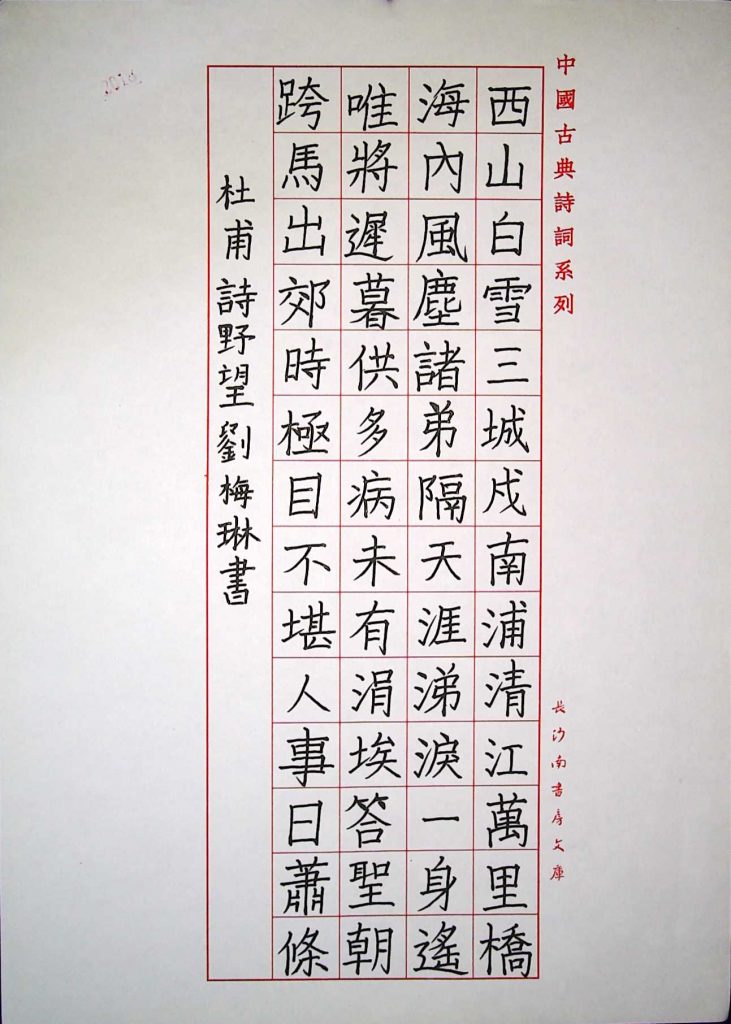 中國古典詩詞系列
長沙南書房文庫
西山白雪三城戍南浦清江萬里橋
海內風塵諸弟隔天涯涕淚一身遙
唯將遲暮供多病未有涓埃答聖朝
跨馬出郊時極目不堪人事日蕭條
杜甫詩野望劉梅琳書